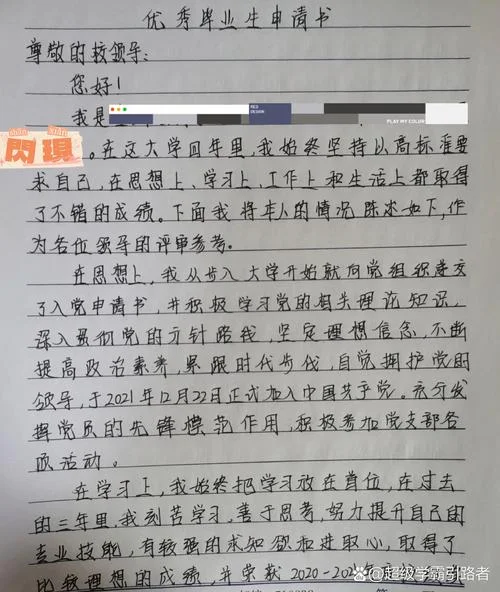 优秀毕业生申请书
尊敬的校领导:
您好!
我是
RED
DESIGN
PLAY MY COLOR
shǎn xiàn
闪現
。在这大学四年里,我始终坚持以高标准要
求自己,在思想上、学习上、工作上和生活上都取得
了不错的成绩。下面我将本人的情况陈述如下,作
为各位领导的评审参考。
在思想上,我从步入大学开始就向党组织递交
了入党申请书,并积极学习党的相关理论知识,
深入贯彻党的方针路线,坚定理想信念,不断
提高政治素养,紧跟时代步伐,自觉拥护党的
领导,于2021年12月22日正式加入中国共产党。充分发
挥党员的先锋模范作用,积极参加党支部各
项活动。
在学习上,我始终把学习放在首位,在过去
的三年里,我刻苦学习,善于思考,努力提升自己的
专业技能,有较强的求知欲和进取心,取得了
比较理想的成绩,并荣获2020-202
@超级学霸引路者